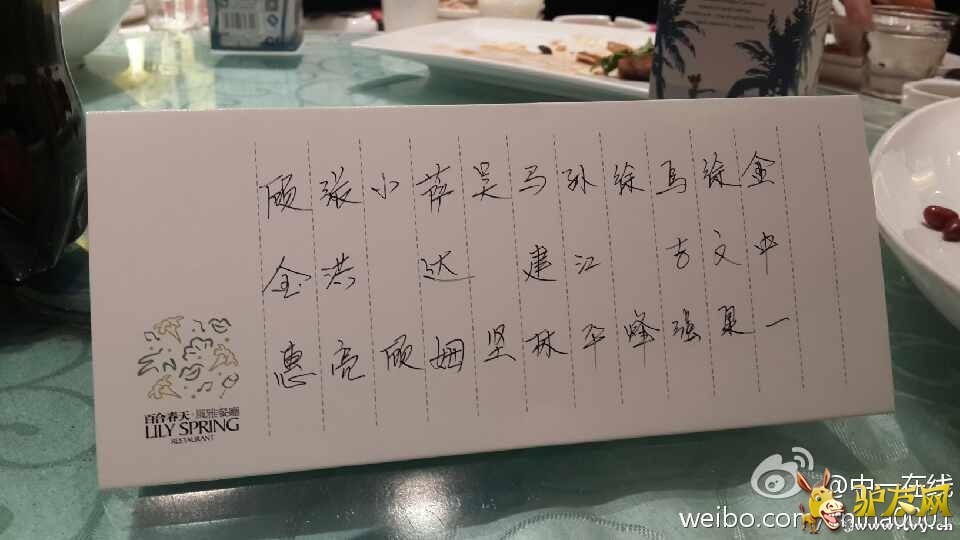 顾张小萨吴马孙徐马徐金
金洪 达 建江 方文中
惠亮顾姆坚林平峰强一
百合春天·風雅餐廳
LILY SPRING
RESTAURANT
@中一在线
weibo.com/
驴友网